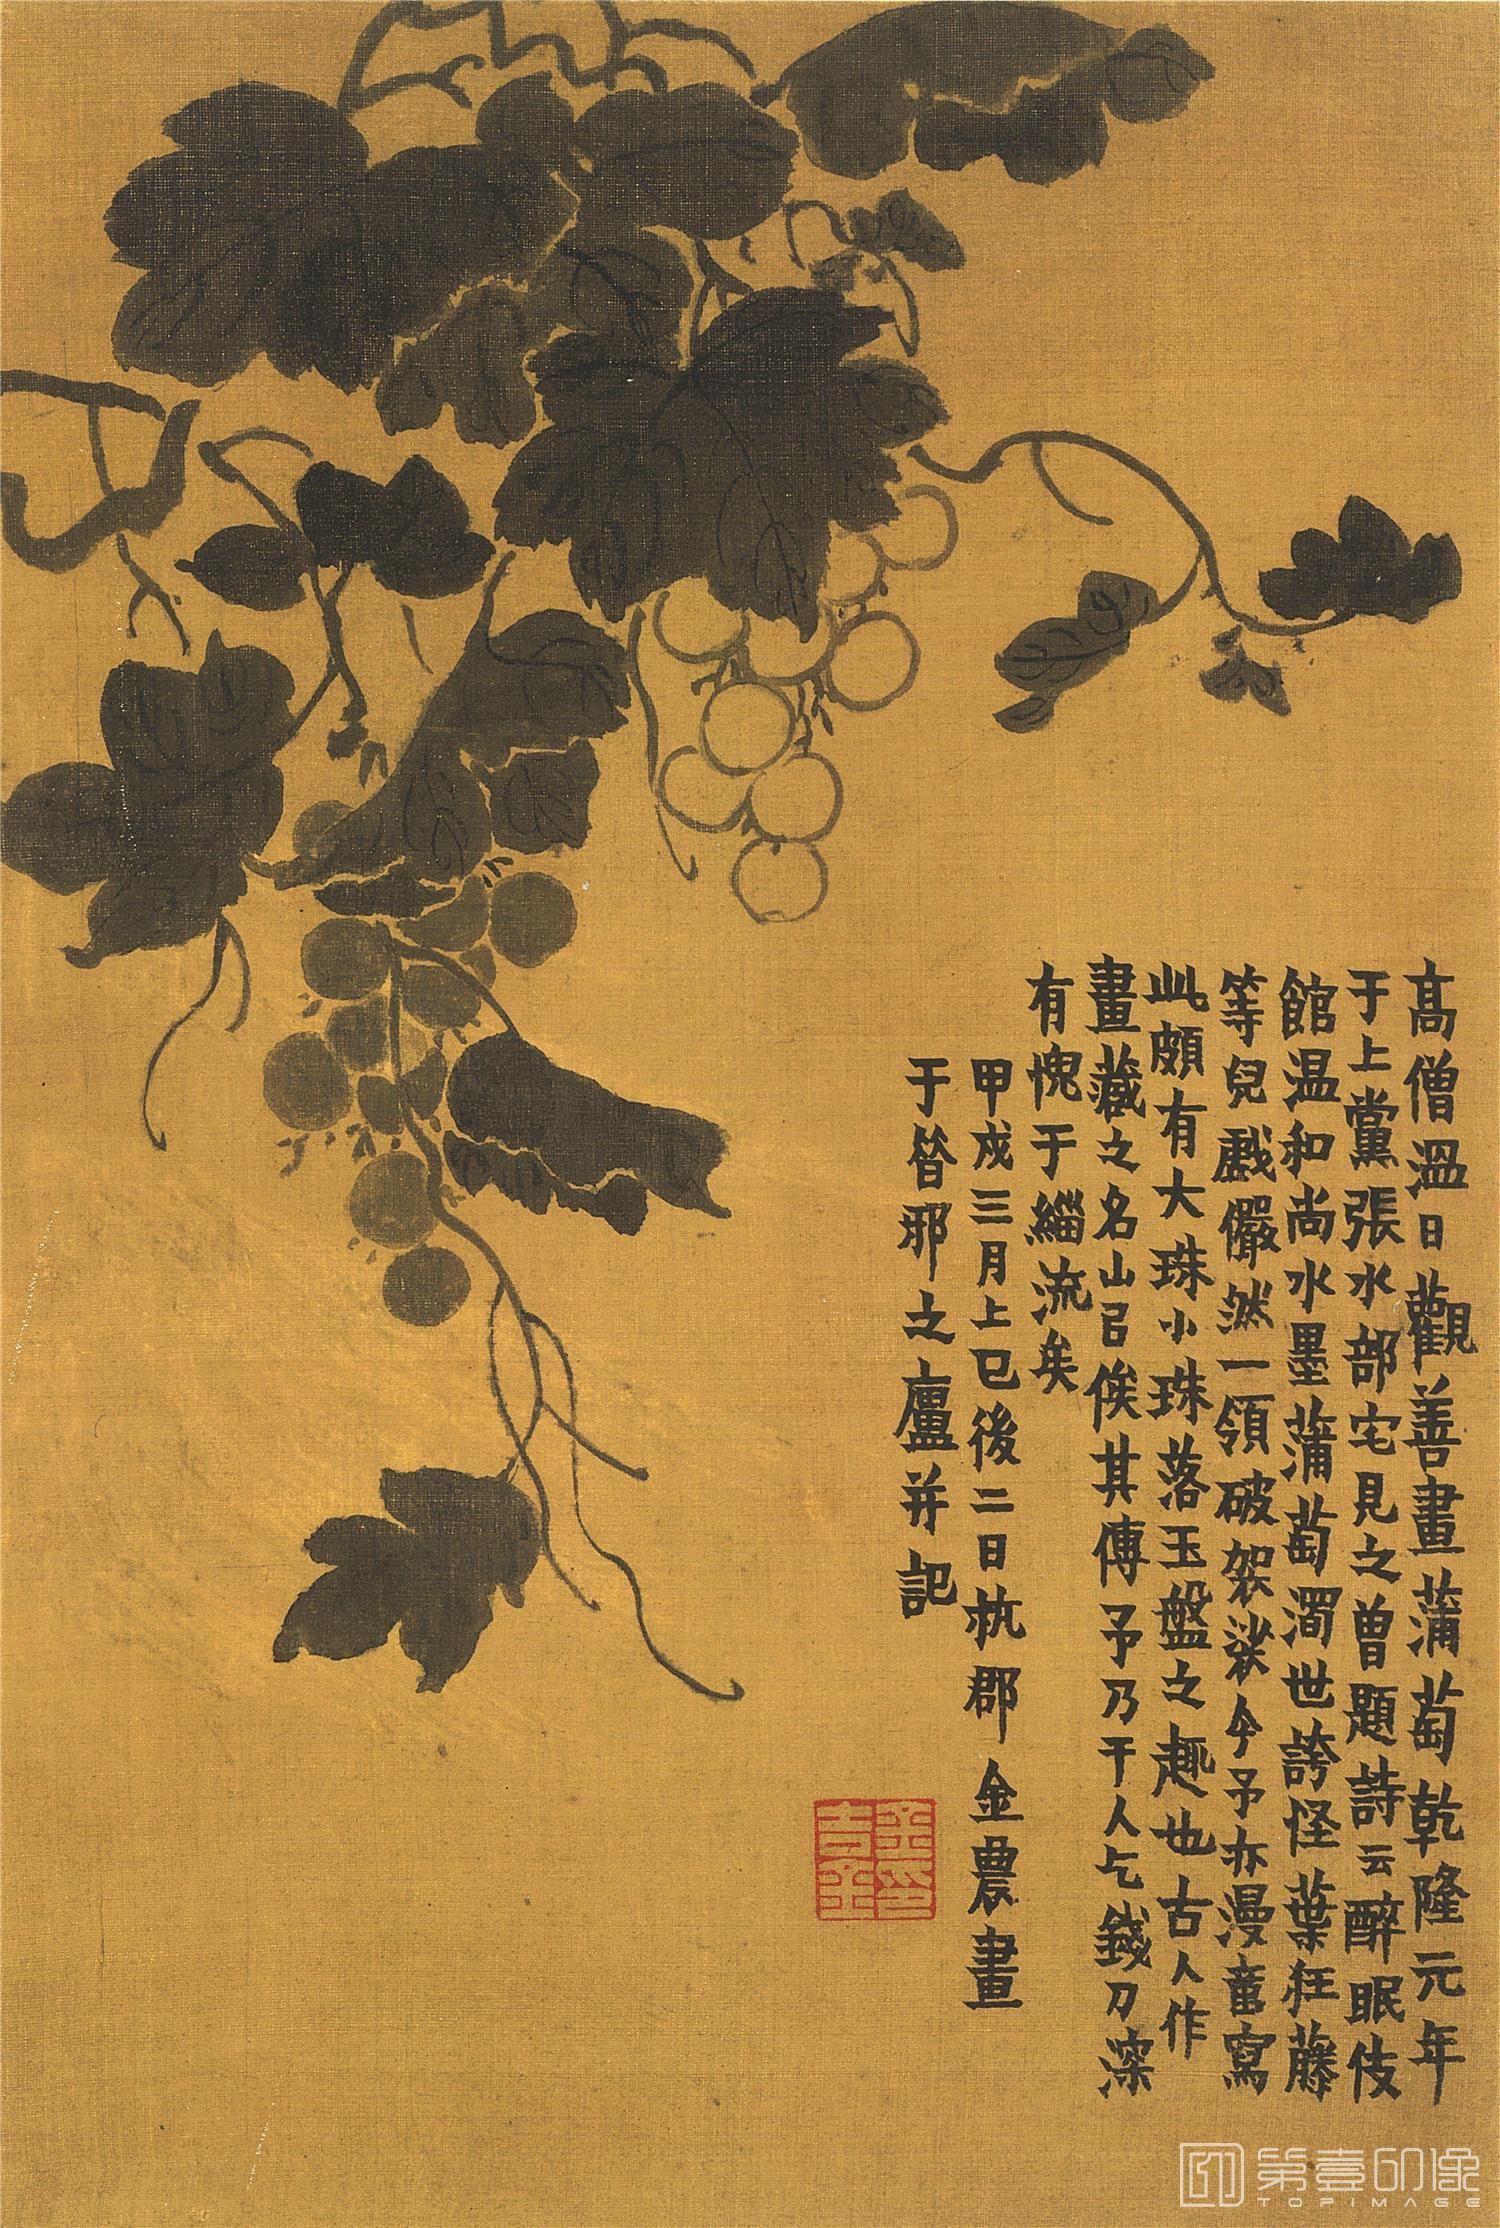 高僧溫日觀善畫蒲萄乾隆元年
于上黨張水部宅見之曾題詩云醉眠伎
館温和尚水墨蒲萄濁世誇怪葉狂藤
等兒戲儼然一領破袈裟今予亦漫畫寫
此頗有大珠小珠落玉盤之趣也古人作
畫藏之名山㠯俟其傳予乃干人乞錢刀深
有愧于緇流矣
甲戍三月上巳後二日杭郡金農畫
于昝邪之廬并記
金吉金印
第壹印像
TOPIMAGE